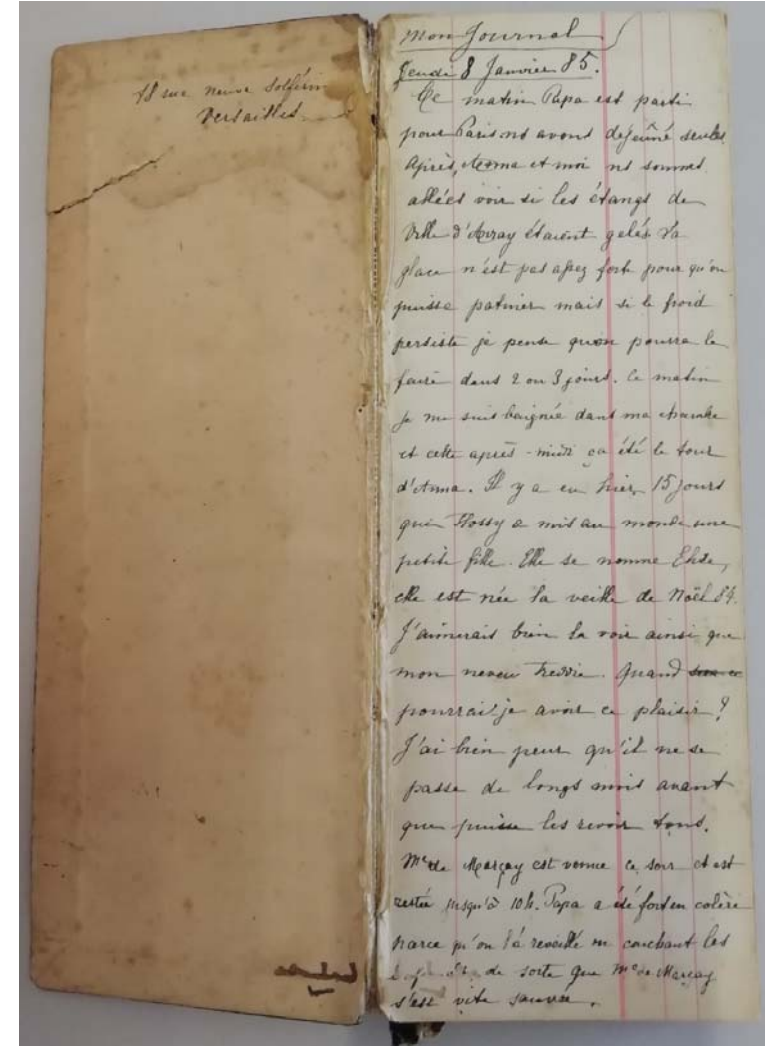 18 rue neuve Solférin
Versailles.
Mon Journal
Jeudi 8 Janvier 85.
Ce matin Papa est parti
pour Paris ns avons dejeûné seules.
Après, Anna et moi ns sommes
allées voir si les étangs de
Ville d'Avray étaient gelés. La
glace n'est pas assez forte pour qu'on
puisse patiner mais si le froid
persiste je pense qu'on pourra le
faire dans 2 ou 3 jours. Ce matin
je me suis baignée dans ma chambre
et cette après-midi ça été le tour
d'Anna. Il y a eu hier, 15 jours
que Flossy a mis au monde une
petite fille. Elle se nomme
elle est née la veille de Noël 84.
J'aimerais bien la voir ainsi que
mon neveu Freddie. Quand
pourrai je avoir ce plaisir ?
J'ai bien peur qu'il ne se
passe de longs mois avant
que puisse les revoir tous.
Me de Marçay est venue ce soir et est
restée jusqu'à 10h. Papa a été fort en colère
parce qu'on l'a reveillé en couchant les
de sorte que Me de Marçay
s'est vite sauvée.